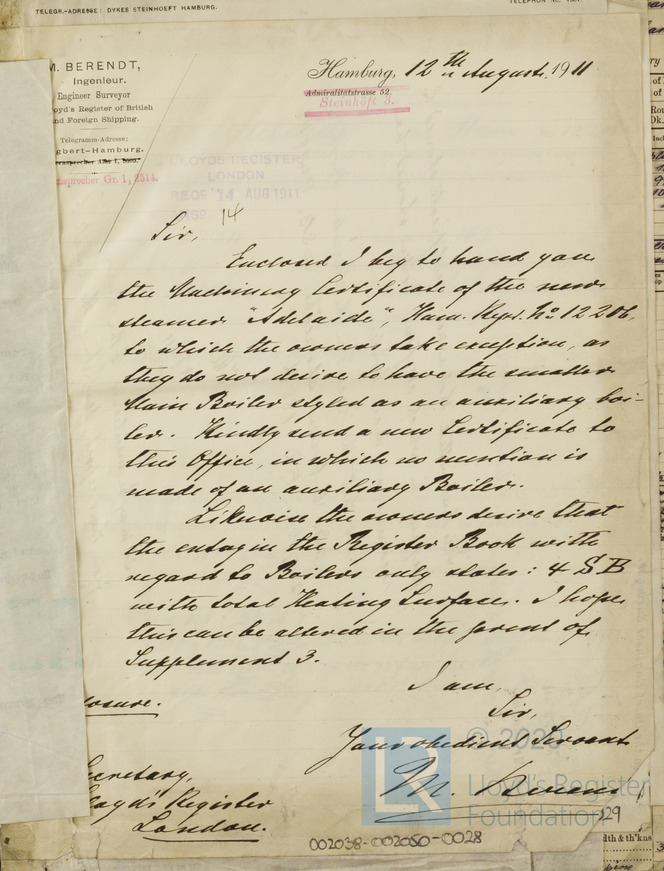 TELEGR.-ADRESSE: DYKES STEINHOEFT HAMBURG.
M. BERENDT,
Ingenieur.
Engineer Surveyor
oyd's Register of British
nd Foreign Shipping.
Telegramm-Adresse:
gbert-Hamburg.
sprecher Gr. 1, 2514.
Hamburg, 12th August 1911
Admiralitätstrasse 52.
Steinhöft 3.
LLOYDS REGISTER
LONDON
14 AUG 1911
14
Sir,
Enclosed I beg to hand you
the Machinery Certificate of the new
steamer "Adelaide", Ham. Rept. No 12206,
to which the owners take exception, as
they do not desire to have the smaller
Main Boiler styled as an auxiliary boi-
ler. Kindly send a new Certificate to
this Office, in which no mention is
made of an auxiliary Boiler.
Likewise the owners desire that
the entry in the Register Book with
regard to Boilers only states: 4 SB
with total Heating Surface. I hope
this can be altered in the
Supplement 3.
I am,
Sir,
Your obedient Servant
M.
losure.
ecretary,
loyd's Register
London.
© 2020
LR
Lloyd's Register
Foundation
129
002038-002050-0028